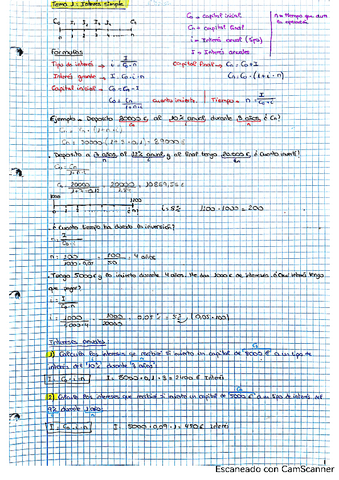 Tema 1: Interés simple
C₀ = capital inicial
n = tiempo que dura la operación
C₀ I₁ I₂ I₃ Cn
Cn = capital final
i = interés anual (tipo)
I = Intereses anuales
Formulas
Tipo de interés → i = I / C₀·n
Capital final → Cn = C₀ + I
Interés → I = C₀·i·n
Cn = C₀·(1+i·n)
Capital inicial → C₀ = Cn - I
C₀ = Cn / 1+n·i
cuanto invierto
Tiempo → n = I / C₀·i
Ejemplo - Deposito 20000 €, al 10% anual, durante 3 años ¿Cn?
Cn = C₀ · (1+n·i)
· Deposito a 7 años al 12% anual y al final tengo 20.000 €, ¿cuanto invertí?
C₀ = Cn / 1+n·i
1000
1200
i = 5%
1200 - 1000 = 200
· ¿Cuanto tiempo ha durado la inversión?
n = I / C₀·i
n = 200 / 1000·0.05 = 200 / 50 = 4 años
· Tengo 5000 € y lo invierto durante 4 años. Me dan 1000 € de intereses. ¿Que interés tengo que pagar?
i = I / C₀·n
i = 1000 / 5000·4 = 1000 / 20000 = 0.05 = 5% (0.05·100)
Intereses anuales
1) Calcula los intereses que recibiré si invierto un capital de 8000 € a un tipo de
interés del 10% durante 3 años
I = C₀·i·n
I = 8000·0.1·3 = 2400 € Interés
2) Calcula los intereses que recibiré si invierto un capital de 5000 € a un tipo de interés del
9% durante 1 año
I = C₀·i·n
I = 5000·0.09·1 = 450 € interés
Escaneado con CamScanner